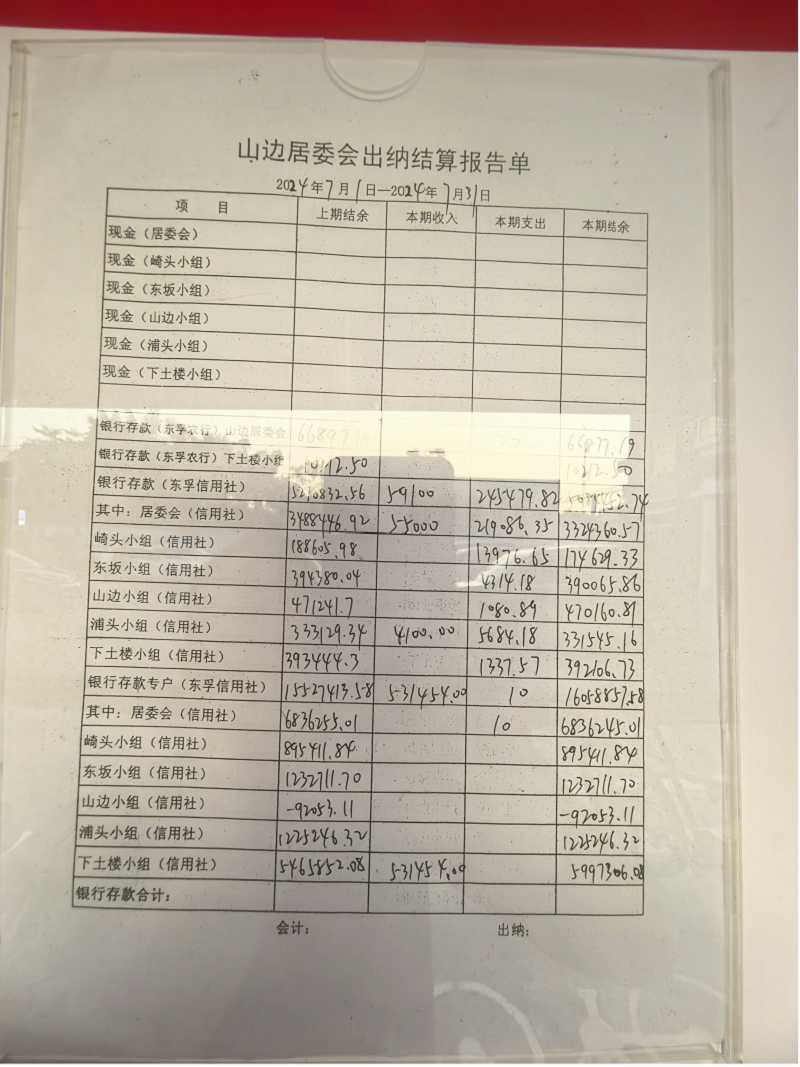 山边居委会出纳结算报告单
2024年7月1日—2024年7月31日
项 目 上期结余 本期收入 本期支出 本期结余
现金（居委会）
现金（崎头小组）
现金（东坂小组）
现金（山边小组）
现金（浦头小组）
现金（下土楼小组）
银行存款（东孚农行）山边居委会 20 66877.19
银行存款（东孚农行）下土楼小组 10212.50 10212.50
银行存款（东孚信用社） 5270832.56 59100 245479.82
其中：居委会（信用社） 3488446.92 55000 219086.35 3324360.57
崎头小组（信用社） 188605.98 13976.65 174629.33
东坂小组（信用社） 394380.04 4314.18 390065.86
山边小组（信用社） 471241.7 1080.89 470160.81
浦头小组（信用社） 333129.34 4100.00 5684.18 331545.16
下土楼小组（信用社） 393444.3 1337.57 392106.73
银行存款专户（东孚信用社） 15527413.58 531454.00 10 16058857.58
其中：居委会（信用社） 6836255.01 10 6836245.01
崎头小组（信用社） 895411.84 895411.84
东坂小组（信用社） 1232711.70 1232711.70
山边小组（信用社） -92053.11 -92053.11
浦头小组（信用社） 1225246.32 1225246.32
下土楼小组（信用社） 5465852.08 531454.00 5997306.08
银行存款合计：
会计： 出纳：